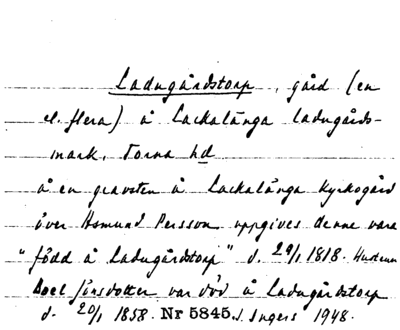 Ladugårdstorp, gård (en
el. flera) å Lackalänga ladugårds-
mark, Torna hd
å en gravsten å Lackalänga kyrkogård
över Asmund Persson uppgives denne vara
"född å Ladugårdstorp" d. 29/1 1818. Hustrun
Boel Jönsdotter var död å Ladugårdstorp
d. 20/1 1858. Nr 5845. I. Ingers 1948.